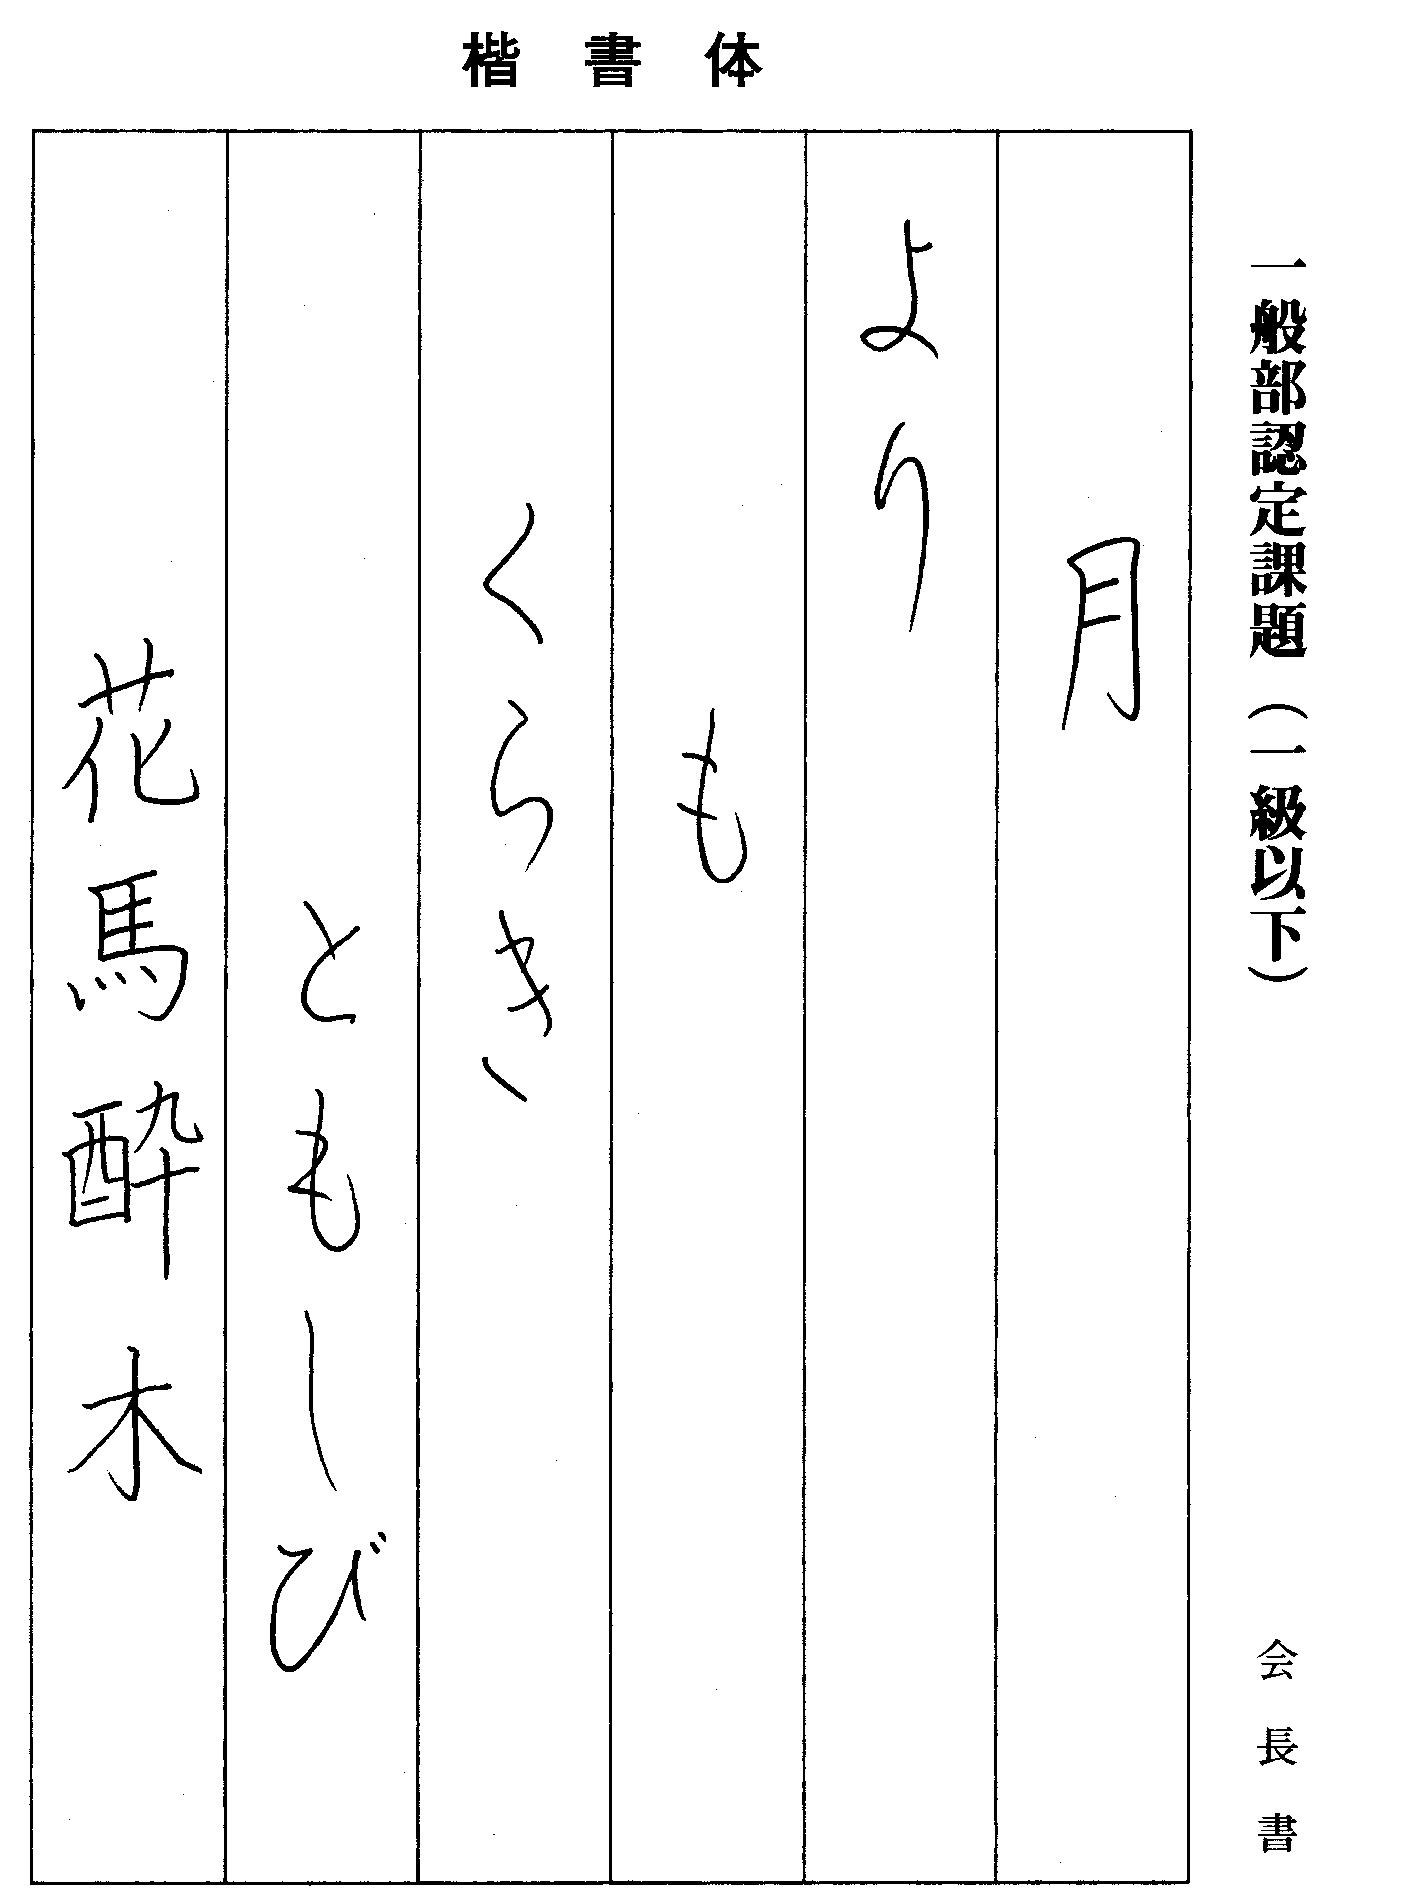 楷書体
一般部認定課題（一級以下）
会長書
月
より
も
くらき
ともしび
花馬酔木